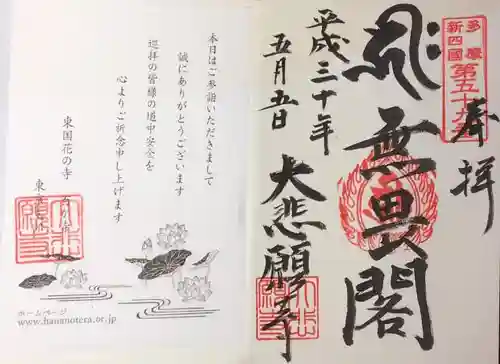 奉拝
多摩
新四國
第五十九番
無畏閣
平成三十年
五月五日
大悲願寺
本日はご参詣いただきまして
誠にありがとうございます
巡拝の皆様の道中安全を
心よりご祈念申し上げます
東国花の寺
ホームページ
www.hananotera.or.jp